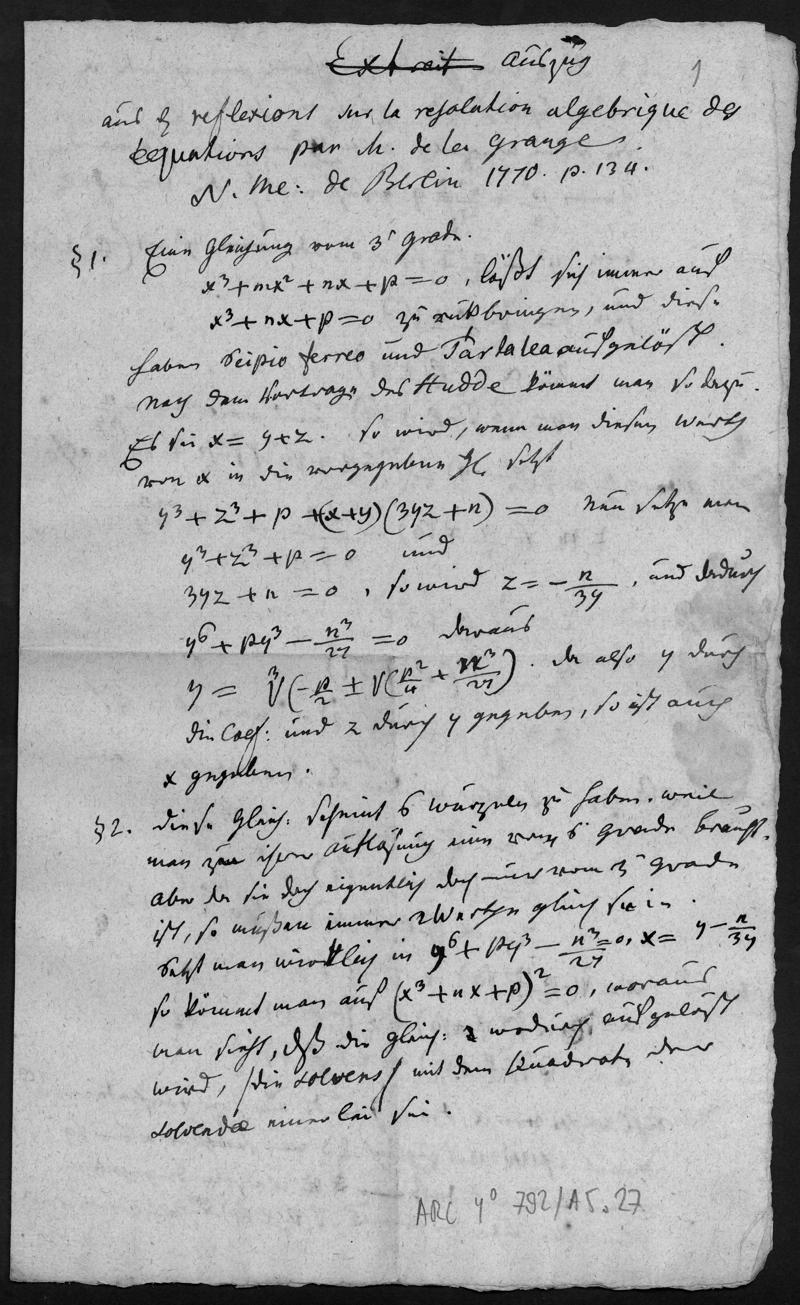 Extrait Auszug
1
aus d. reflexions sur la resolution algebrique des
equations par M. de la Grange.
N. Me: de Berlin 1770. p. 134.
§ 1. Eine Gleichung vom 3t Grade.
x³ + mx² + nx + p = 0, läßt sich immer auf
x³ + nx + p = 0 zurükbringen, und diese
haben Scipio ferreo und Tartalea aufgelöst.
nach dem Vortrage des Hudde kömmt man so dazu.
Es sei x = y + z. so wird, wenn man diesen Werth
von x in die vorgegebene Gl. setzt
y³ + z³ + p + (x + y) (3yz + n) = 0 Nun setze man
y³ + z³ + p = 0 und
3yz + n = 0, so wird z = - n/3y, und dadurch
y⁶ + py³ - n³/27 = 0 daraus
y = ∛(-p/2 ± √(p²/4 + n³/27). da also y durch
die Coef: und z durch y gegeben, so ist auch
x gegeben.
§ 2. diese Gleich: scheint 6 Wurzeln zu haben. weil
man zu ihrer Auflösung eine vom 6 Grade braucht.
aber da sie doch eigentlich doch nur vom 3t Grade
ist, so müßen immer 2 Werthe gleich sein.
Setzt man wirklich in y⁶ + py³ - n³/27 = 0, x = y - n/3y
so kömmt man auf (x³ + nx + p)² = 0, woraus
man sieht, daß die Gleich: wodurch aufgelöst
wird, /die solvens/ mit dem Quadrate der
solvendae einerlei sei.
ARC 4° 792/A5.27